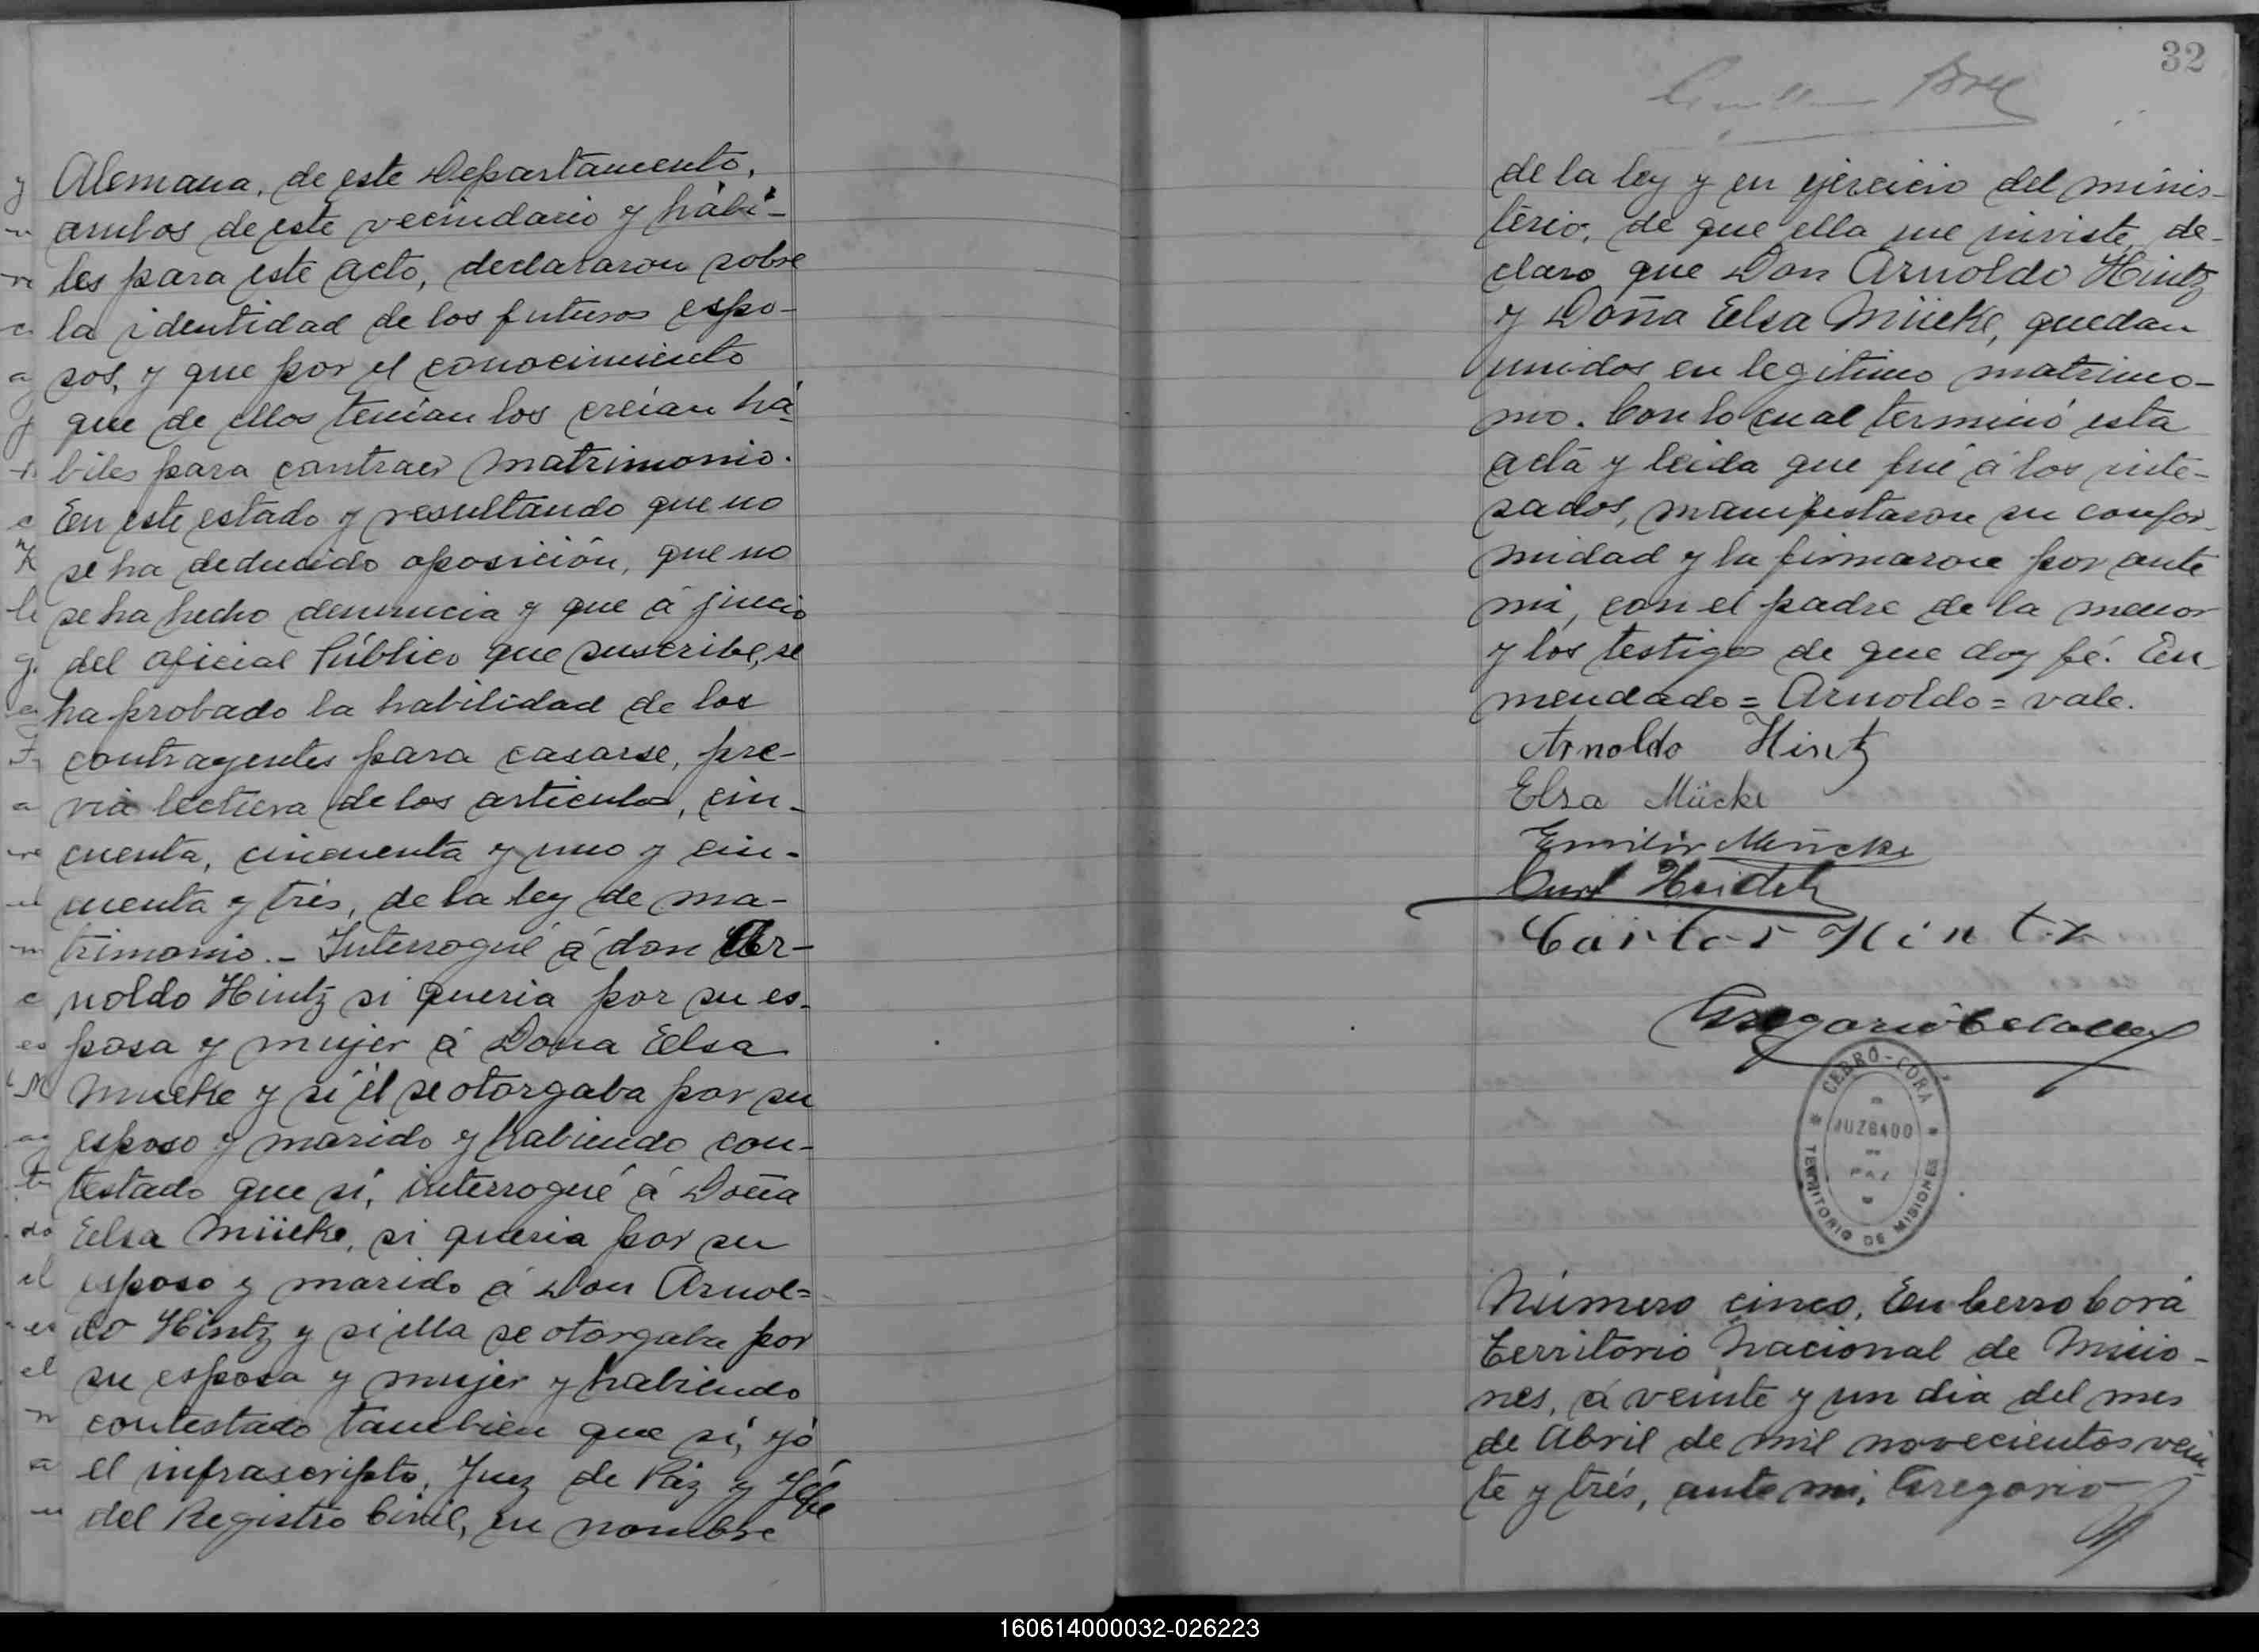 Alemana, de este Departamento,
ambos de este vecindario y hábi-
les para este acto, declararon sobre
la identidad de los futuros espo-
sos, y que por el conocimiento
que de ellos tenían los creían há-
biles para contraer matrimonio.
En este estado y resultando que no
se ha deducido oposición, que no
se ha hecho denuncia y que á juicio
del oficial Público que suscribe, se
ha probado la habilidad de los
contrayentes para casarse, pre-
via lectura de los articulos, cin-
cuenta, cincuenta y uno y cin-
cuenta y trés, de la ley de ma-
trimonio.- Interrogué á don Ar-
noldo Hintz si queria por su es-
posa y mujer á Doña Elsa
Mucke y si él se otorgaba por su
esposo y marido y habiendo con-
testado que sí, interrogué á Doña
Elsa Mücke, si queria por su
esposo y marido á Don Arnol=
do Hintz y si ella se otorgaba por
su esposa y mujer y habiendo
contestado tambien que sí, yó
el infrascripto, Juez de Páz y Jéfe
del Registro Civil, en nombre
32
de la ley y en ejercicio del minis-
terio, de que ella me inviste, de-
claro que Don Arnoldo Hintz
y Doña Elsa Mücke, quedan
unidos en legitimo matrimo-
nio. Con lo cual terminó esta
acta y leida que fué á los inte-
sados, manifestaron su confor-
midad y la firmaron por ante
mi, con el padre de la menor
y los testigos de que doy fé. En
mendado = Arnoldo = vale.
Arnoldo Hintz
Elsa Mücke
Emilio Mücke
Curt
Carlos Hintz
Gregorio
CERRO-CORÁ
JUZGADO
DE
PAZ
TERRITORIO DE MISIONES
Número cinco, En Cerro Corá
Territorio Nacional de Misio-
nes, á veinte y un dia del mes
de Abril de mil novecientos vein-
te y trés, ante mi, Gregorio
160614000032-026223